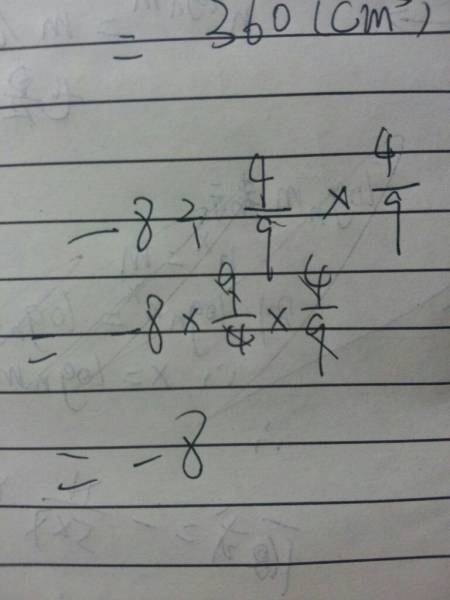 = 360 (cm³)
-8 ÷ 4/9 × 4/9
= -8 × 9/4 × 4/9
= -8